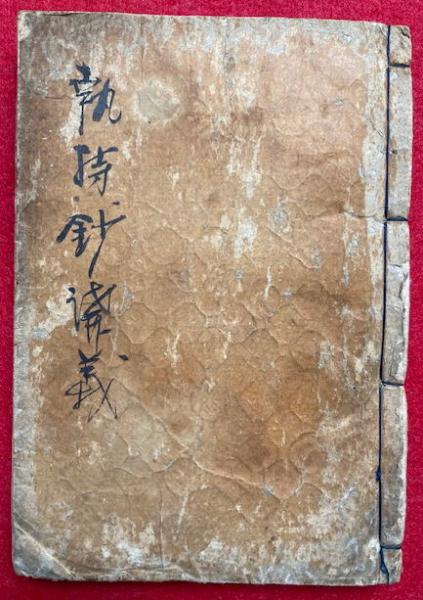 執持鈔講義